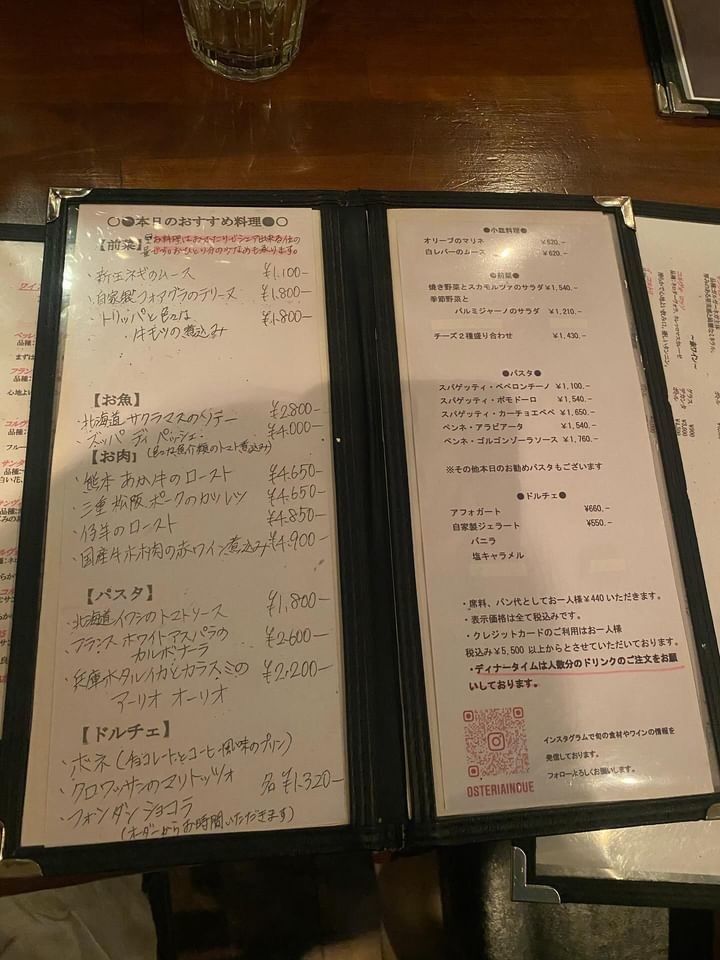 ○●本日のおすすめ料理●○
【前菜】
・新玉ネギのムース ¥1,100-
・自家製フォアグラのテリーヌ ¥1,800-
・トリッパと
・牛モツの煮込み ¥1,800-
【お魚】
・北海道 サクラマスのソテー ¥2800-
・ズッパ ディ ペッシェ ¥4,000-
魚介類のトマト煮込み)
【お肉】
・熊本 あか牛のロースト ¥4.650-
・三重 松阪ポークのカツレツ ¥4.650-
・仔牛のロースト ¥4.850-
・国産牛ホホ肉の赤ワイン煮込み ¥4.900-
【パスタ】
・北海道イワシのトマトソース ¥1,800-
・フランス ホワイトアスパラの
カルボナーラ ¥2600-
・兵庫ホタルイカとカラスミの ¥2,200-
アーリオ オーリオ
【ドルチェ】
・ボネ(チョコレートとコーヒー風味のプリン)
・クロワッサンのマリトッツォ 各¥1.320-
・フォンダンショコラ
(オーダーからお時間いただきます)
●小皿料理●
オリーブのマリネ ¥620.-
白レバーのムース ¥620.-
●前菜●
焼き野菜とスカモルツァのサラダ ¥1,540.-
季節野菜と
パルミジャーノのサラダ ¥1,210.-
チーズ2種盛り合わせ ¥1,430.-
●パスタ●
スパゲッティ・ペペロンチーノ ¥1,100.-
スパゲッティ・ポモドーロ ¥1,540.-
スパゲッティ・カーチョエペペ ¥1,650.-
ペンネ・アラビアータ ¥1,540.-
ペンネ・ゴルゴンゾーラソース ¥1,760.-
※その他本日のお勧めパスタもございます
●ドルチェ●
アフォガート ¥660.-
自家製ジェラート ¥550.-
バニラ
塩キャラメル
・席料、パン代としてお一人様¥440いただきます。
・表示価格は全て税込みです。
・クレジットカードのご利用はお一人様
税込み¥5,500以上からとさせていただいております。
・ディナータイムは人数分のドリンクのご注文をお願
いしております。
インスタグラムで旬の食材やワインの情報を
発信しております。
フォローよろしくお願いします。
OSTERIAINCUE